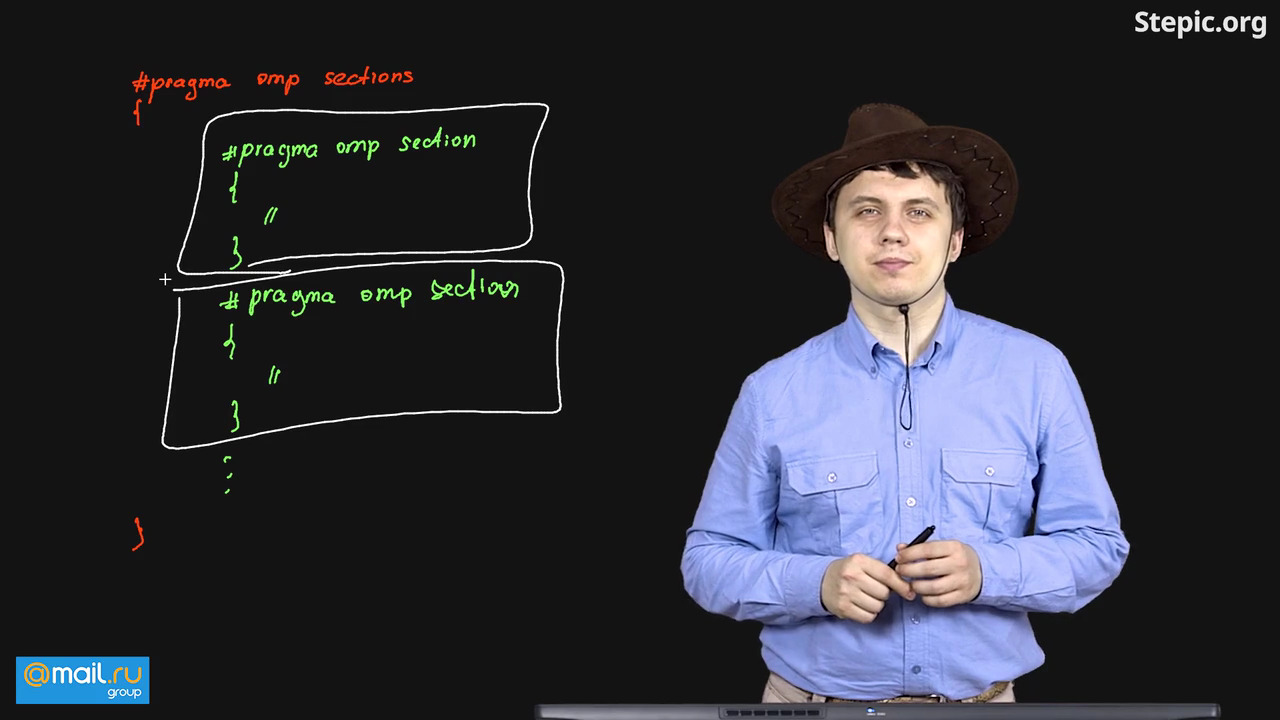 Stepic.org
#pragma omp sections
{
#pragma omp section
{
"
}
#pragma omp section
{
"
}
⋮
}
@mail.ru
group